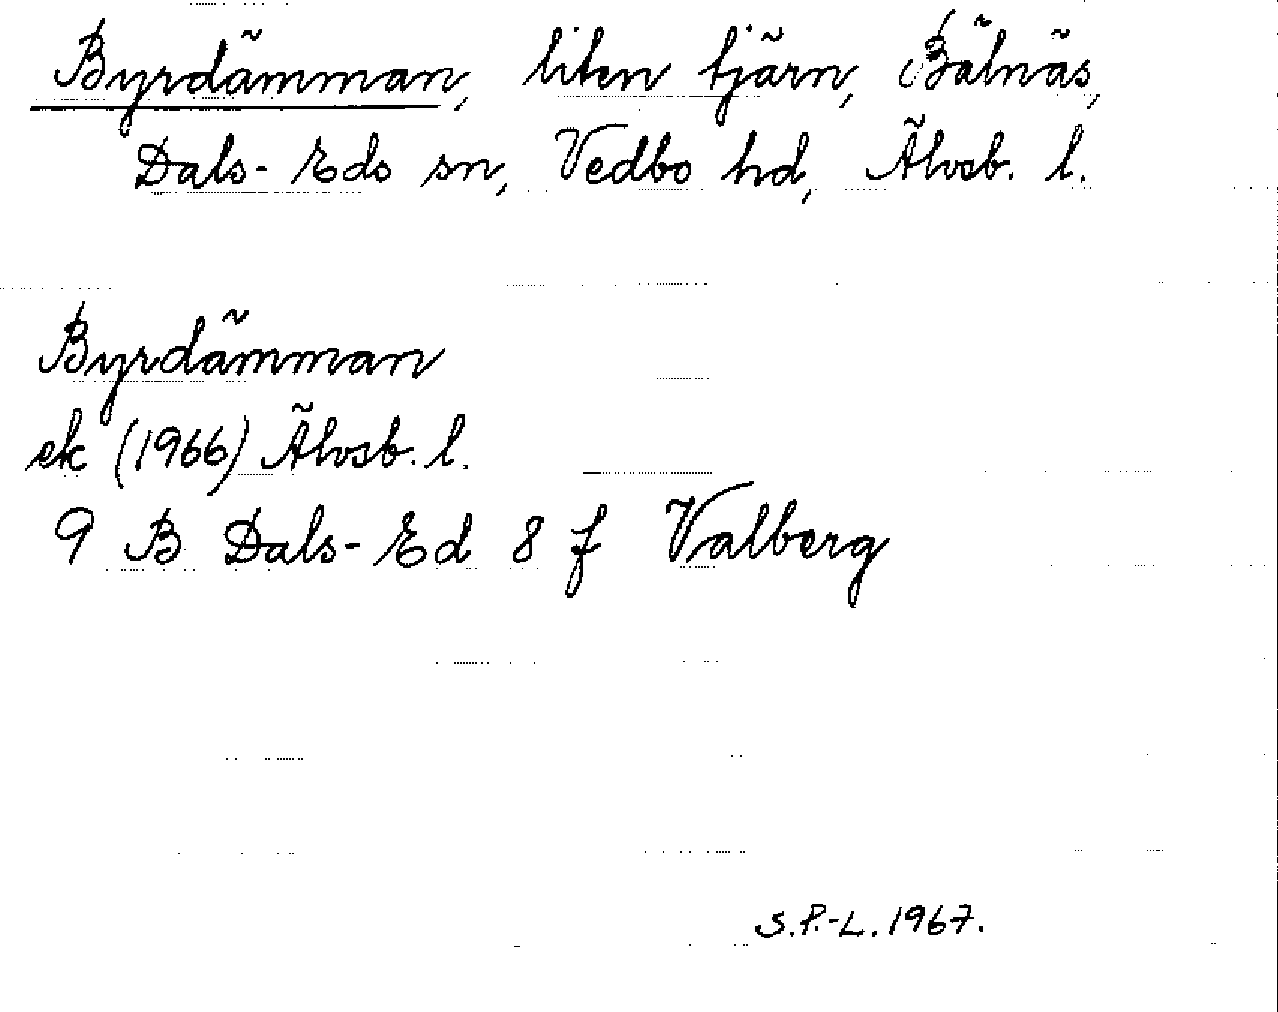 Byrdämman, liten tjärn, Bälnäs,
Dals-Eds sn, Vedbo hd, Älvsb. l.
Byrdämman
ek (1966) Älvsb. l.
9 B Dals-Ed 8 f Valberg
S.P.-L. 1967.